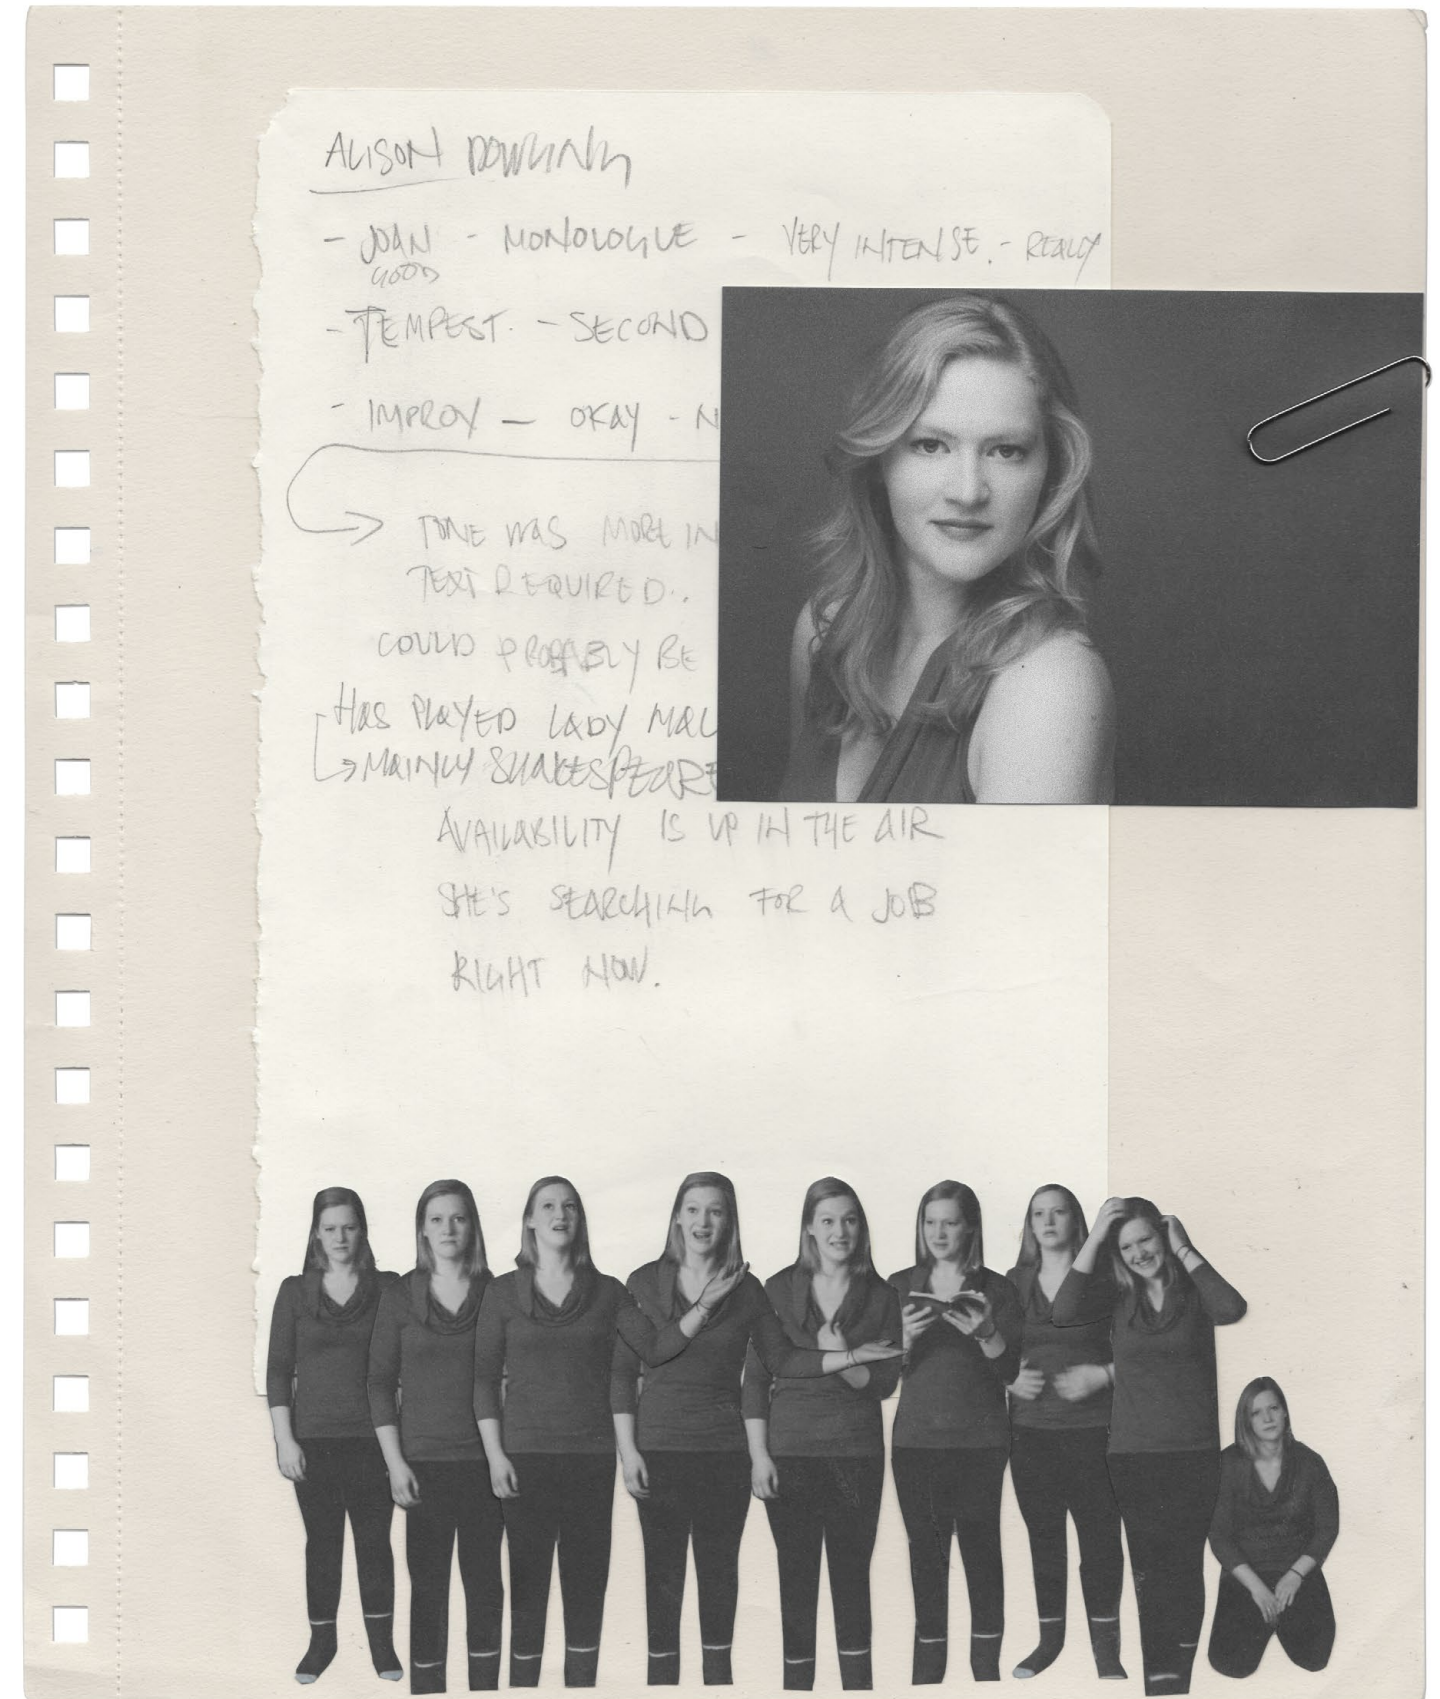 ALISON DOWLING
- JOAN - MONOLOGUE - VERY INTENSE. - REALLY
GOOD
- TEMPEST. - SECOND
- IMPROV - OKAY - N
TONE WAS MORE IN
TEXT REQUIRED..
COULD PROBABLY BE
HAS PLAYED LADY MAC
MAINLY SHAKESPEARE
AVAILABILITY IS UP IN THE AIR
SHE'S SEARCHING FOR A JOB
RIGHT NOW.